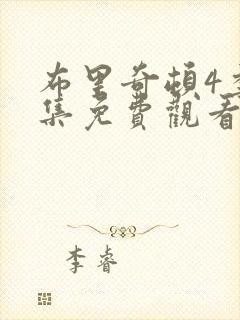 布里奇頓4季
集免費觀看
李睿